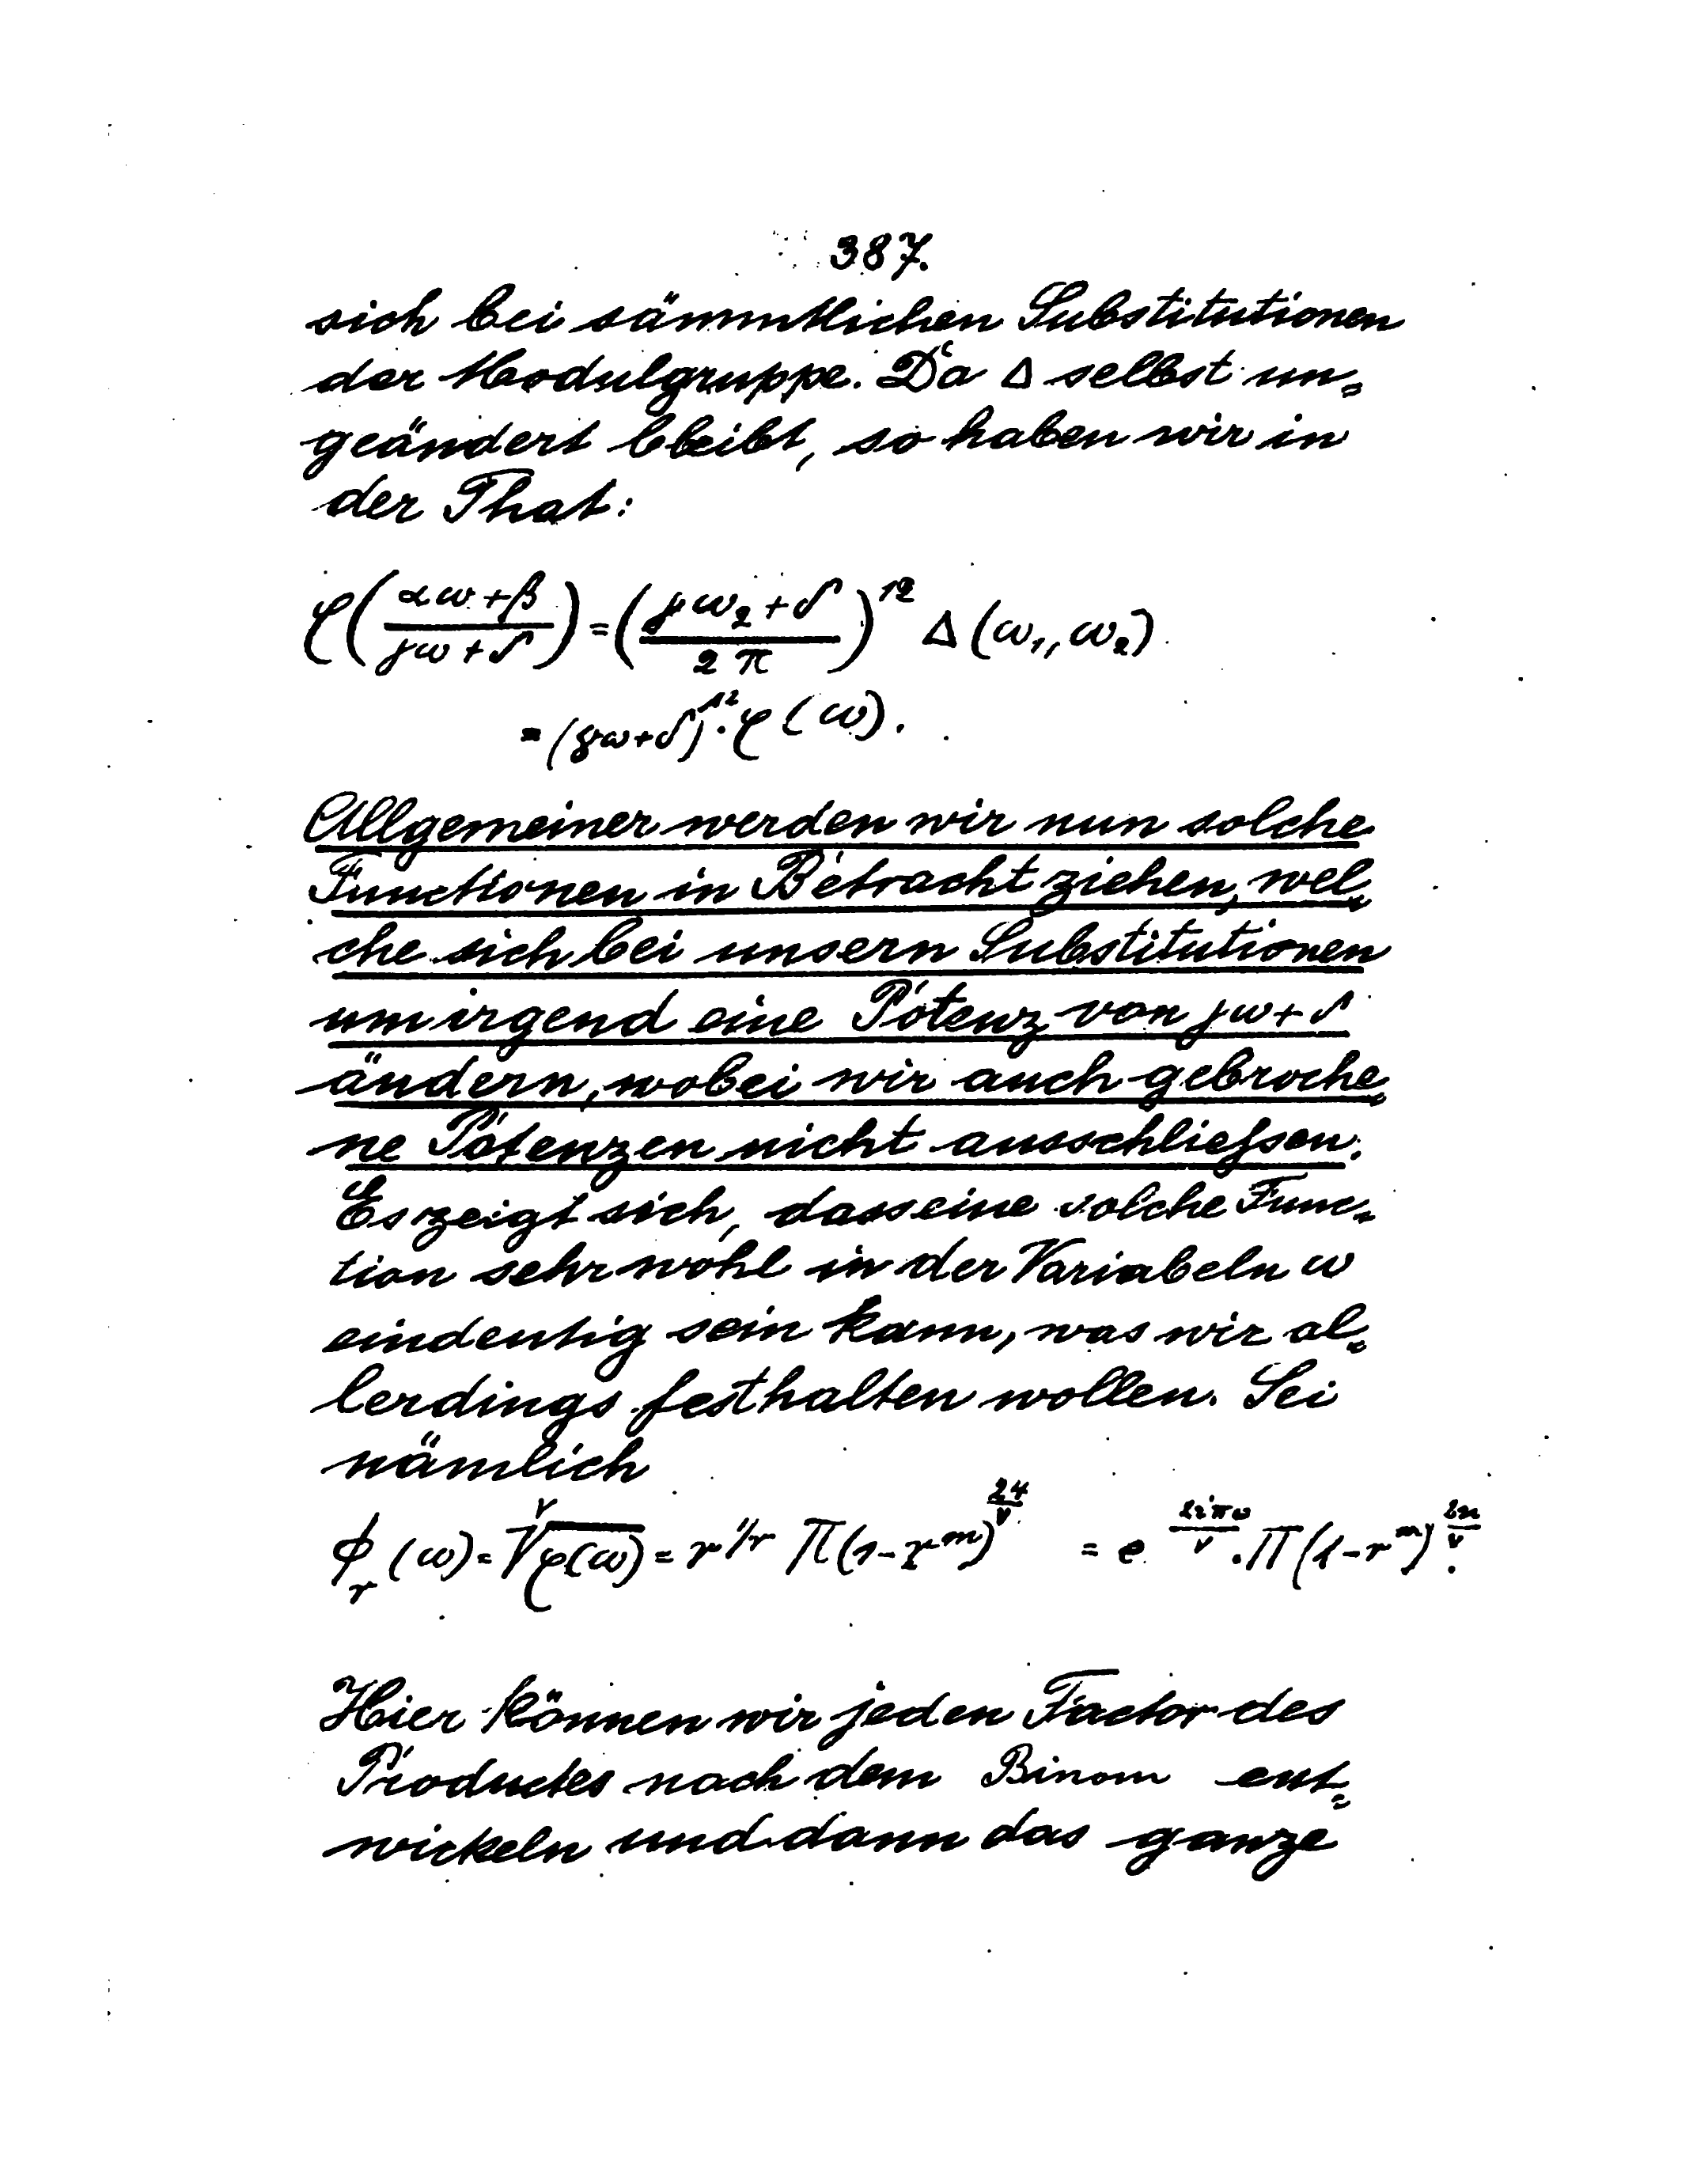 387.
sich bei sämmtlichen Substitutionen
der Modulgruppe. Da Δ selbst un-
geändert bleibt, so haben wir in
der That:
φ((αω+β)/(γω+δ)) = ((γω₂+δ)/(2π))¹² Δ(ω₁,ω₂)
= (γω+δ)¹².φ(ω).
Allgemeiner werden wir nun solche
Functionen in Betracht ziehen, wel-
che sich bei unsern Substitutionen
um irgend eine Potenz von γω+δ
ändern, wobei wir auch gebroche-
ne Potenzen nicht ausschliessen.
Es zeigt sich, dass eine solche Func-
tion sehr wohl in der Variabeln ω
eindeutig sein kann, was wir al-
lerdings festhalten wollen. Sei
nämlich
ϕ_r(ω) = ʳ√φ(ω) = r^{1/r} Π(1-r^m)^{24/r} = e^{2iπω/r}.Π(1-r^m)^{24/r}.
Hier können wir jeden Factor des
Productes nach dem Binom ent-
wickeln und dann das ganze